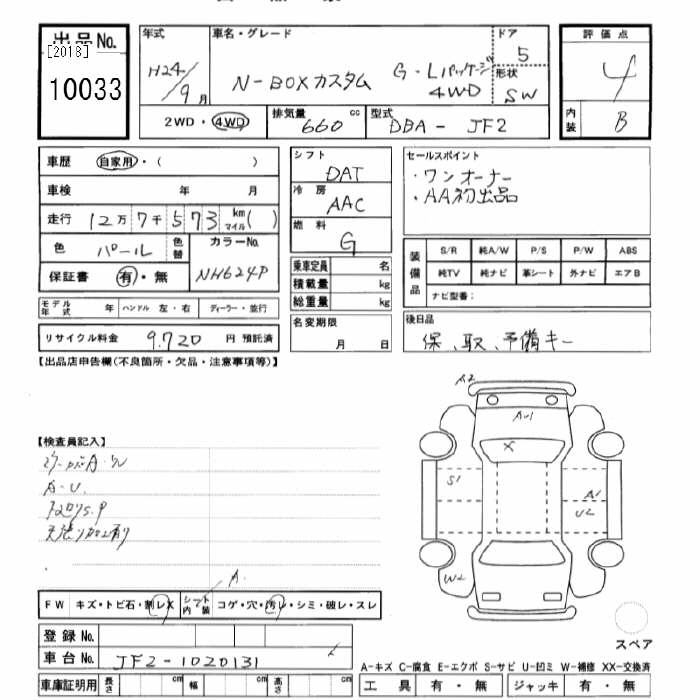 出品No.
[2018]
10033
年式 H24/9月
車名・グレード
N-BOXカスタム G・Lパッケージ 4WD
ドア 5
形状 SW
評価点 4
内装 B
2WD・4WD
排気量 660 cc
型式 DBA-JF2
車歴 自家用・( )
車検 年 月
走行 12万7千573 km マイル ( )
色 パール 色替
カラーNo. NH624P
保証書 有・無
モデル年式 年 ハンドル 左・右 ディーラー・並行
リサイクル料金 9,720 円 預託済
シフト DAT
冷房 AAC
燃料 G
乗車定員 名
積載量 kg
総重量 kg
名変期限 月 日
セールスポイント
・ワンオーナー
・AA初出品
装備品
S/R 純A/W P/S P/W ABS
純TV 純ナビ 革シート 外ナビ エアB
ナビ型番:
後日品
保、取、予備キー
【出品店申告欄(不良箇所・欠品・注意事項等)】
【検査員記入】
A・U.
A2
AU1
X
S1
A1
U2
W2
A.
FW キズ・トビ石・割レX
シート内装 コゲ・穴・汚レ・シミ・破レ・スレ
登録No.
車台No. JF2-1020131
車庫証明用 長さ cm 幅 cm 高さ cm
スペア
A-キズ C-腐食 E-エクボ S-サビ U-凹ミ W-補修 XX-交換済
工具 有・無 ジャッキ 有・無